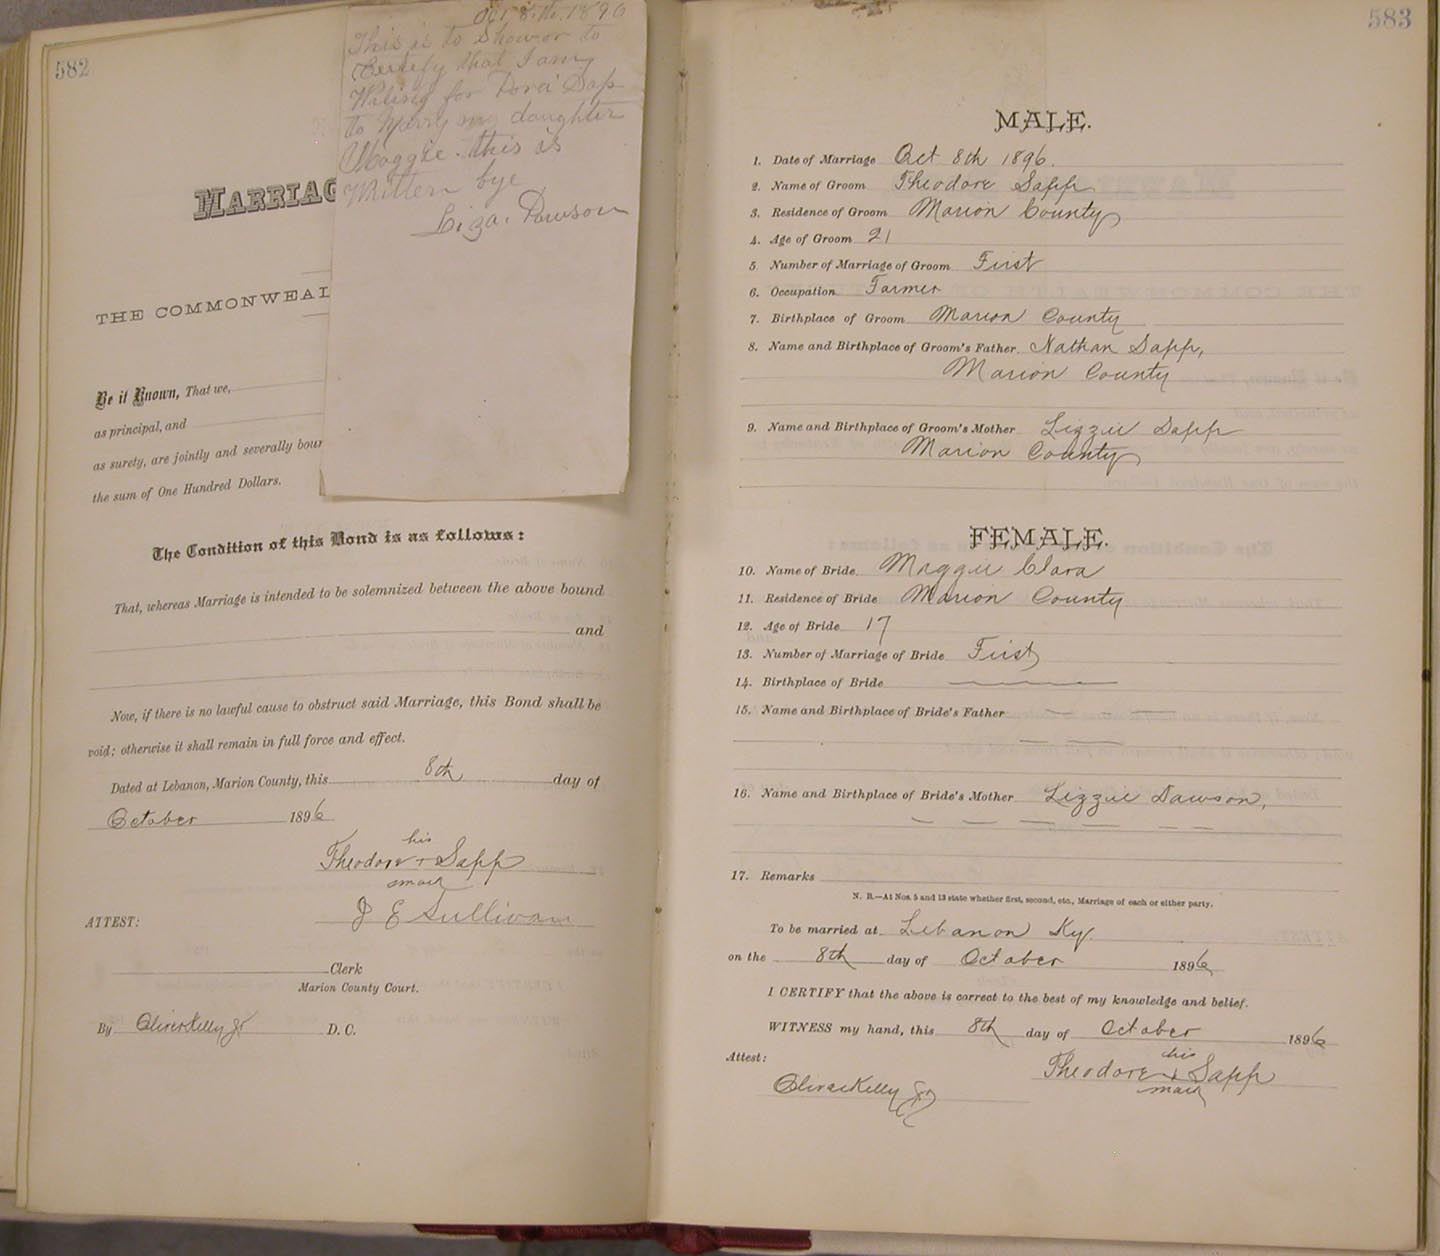 582
Oct 8th. 1896
This is to Show or to
Certify that I am
Wiling for Dora Sap
to Marry my daughter
Maggie. this is
Written bye
Liza. Dawson
MARRIAG
THE COMMONWEAL
Be it Known, That we,
as principal, and
as surety, are jointly and severally boun
the sum of One Hundred Dollars.
The Condition of this Bond is as follows:
That, whereas Marriage is intended to be solemnized between the above bound
and
Now, if there is no lawful cause to obstruct said Marriage, this Bond shall be
void; otherwise it shall remain in full force and effect.
Dated at Lebanon, Marion County, this 8th day of
October 1896
his
Theodore + Sapp
mark
ATTEST: J E Sullivan
Clerk
Marion County Court.
By Oliver Kelly Jr D. C.
583
MALE.
1. Date of Marriage Oct 8th 1896.
2. Name of Groom Theodore Sapp
3. Residence of Groom Marion County
4. Age of Groom 21
5. Number of Marriage of Groom First
6. Occupation Farmer
7. Birthplace of Groom Marion County
8. Name and Birthplace of Groom's Father Nathan Sapp,
Marion County
9. Name and Birthplace of Groom's Mother Lizzie Sapp
Marion County
FEMALE.
10. Name of Bride Maggie Clara
11. Residence of Bride Marion County
12. Age of Bride 17
13. Number of Marriage of Bride First
14. Birthplace of Bride
15. Name and Birthplace of Bride's Father
16. Name and Birthplace of Bride's Mother Lizzie Dawson,
17. Remarks
N. B.—At Nos. 5 and 13 state whether first, second, etc., Marriage of each or either party.
To be married at Lebanon Ky.
on the 8th day of October 1896
I CERTIFY that the above is correct to the best of my knowledge and belief.
WITNESS my hand, this 8th day of October 1896
Attest: his
Theodore + Sapp
mark
Oliver Kelly Jr